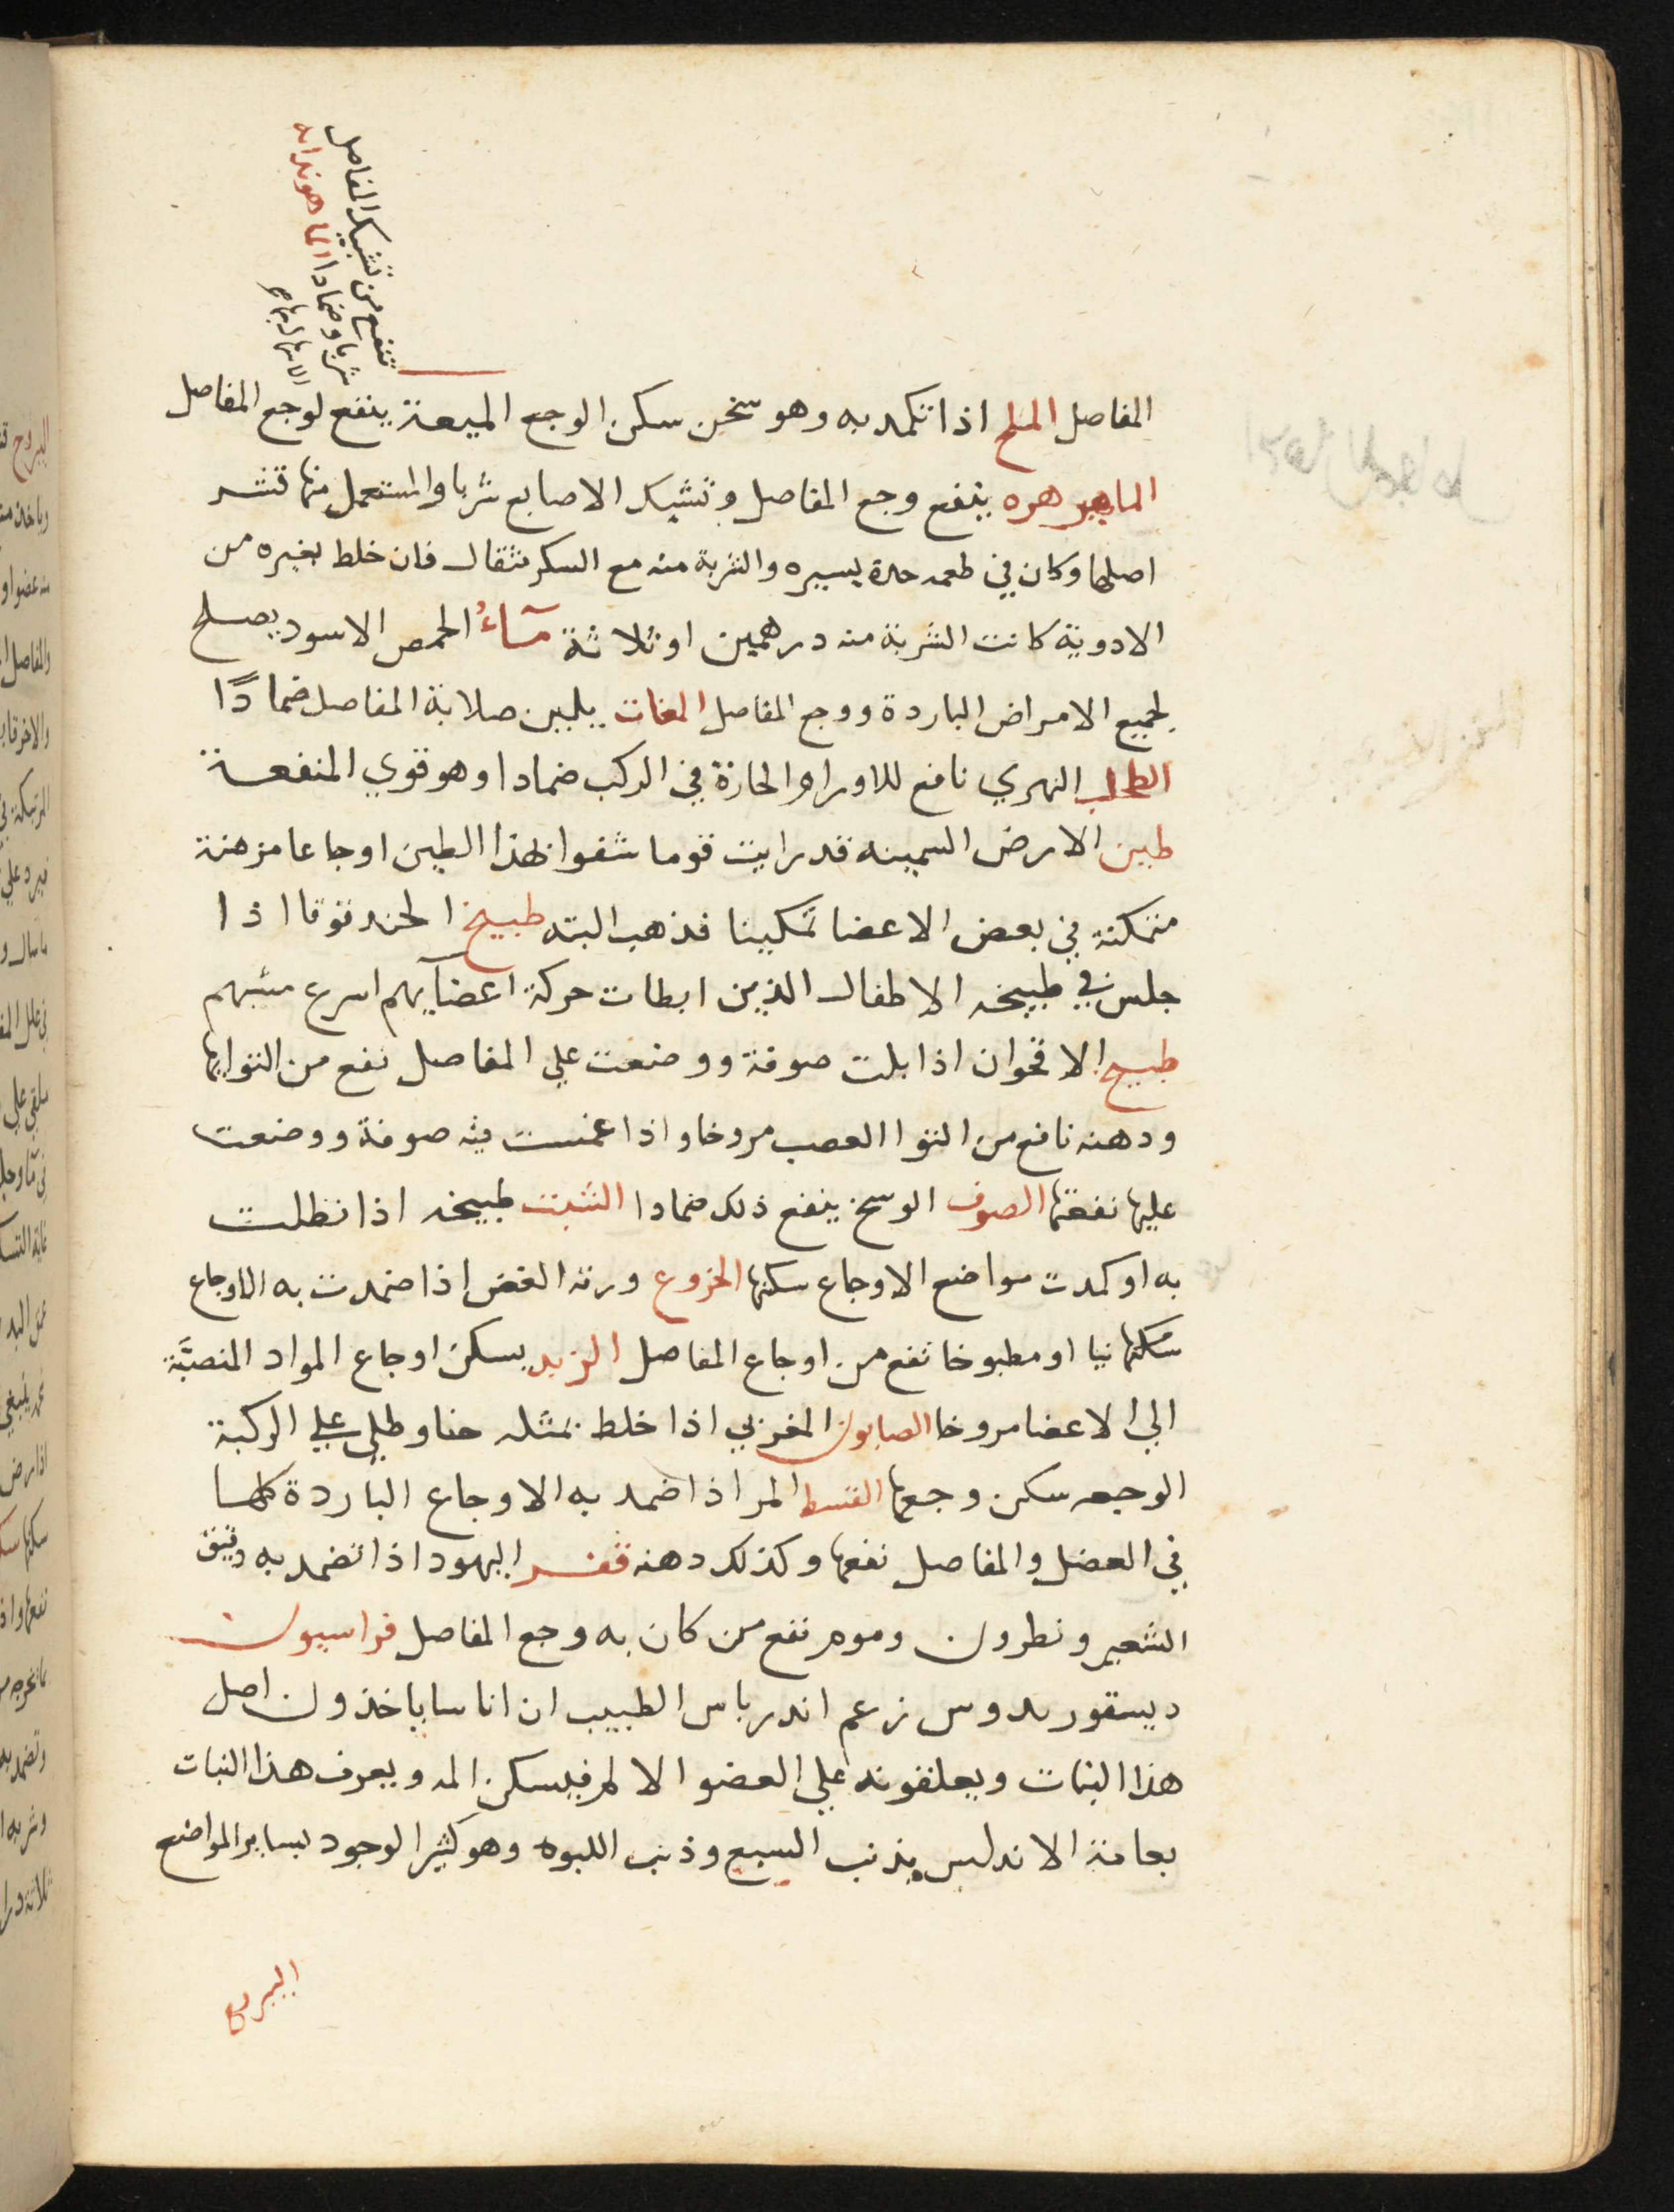 تنفع من تشبك المفاصل
شربا وضمادا الماهودانه
المفاصل الملح اذا تكمد به وهو سخن سكن الوجع الميعة ينفع لوجع المفاصل
الماهيزهره ينفع وجع المفاصل وتشبك الاصابع شربا والمستعمل منها قشر
اصلها وكان في طعمه حدة يسيره والشربة منه مع السكر مثقال فان خلط بغيره من
الادوية كانت الشربة منه درهمين او ثلاثة مآءُ الحمص الاسود يصلح
لجميع الامراض الباردة ووجع المفاصل المغات يلين صلابة المفاصل ضمادًا
الطحلب النهري نافع للاورام الحارة في الركب ضمادا وهو قوي المنفعة
طين الارض السمينه قد رايت قوما شفوا بهذا الطين اوجاعا مزمنة
متمكنة في بعض الاعضا تمكينا فذهب البته طبيخ الحندقوقا اذا
جلس في طبيخه الاطفال الذين ابطات حركة اعضآيهم اسرع مشيهم
طبيخ الاقحوان اذا بلت صوفة ووضعت علي المفاصل نفع من التوايها
ودهنه نافع من التوا العصب مروخا واذا غمست فيه صوفة ووضعت
عليها نفعتها الصوف الوسخ ينفع ذلك ضمادا الشبت طبيخه اذا نطلت
به او كمدت مواضع الاوجاع سكنها الخروع ورقه الغض اذا ضمدت به الاوجاع
سكنها نيا او مطبوخا نفع من اوجاع المفاصل الزبد يسكن اوجاع المواد المنصبَّة
الي الاعضا مروخا الصابون المغربي اذا خلط بمثله حنا وطلي علي الركبة
الوجعه سكن وجعها القسط المر اذا ضمد به الاوجاع الباردة كلها
في العضل والمفاصل نفعها وكذلك دهنه قفر اليهود اذا تضمد به دقيق
الشعير ونطرون وموم نفع من كان به وجع المفاصل فراسيون
ديسقوريدوس زعم اندرياس الطبيب ان اناسا ياخذون اصل
هذا النبات ويعلقونه علي العضو الالم فيسكن المه ويعرف هذا النبات
بعامة الاندلس بذنب السبع وذنب اللبوه وهو كثير الوجود بساير المواضع